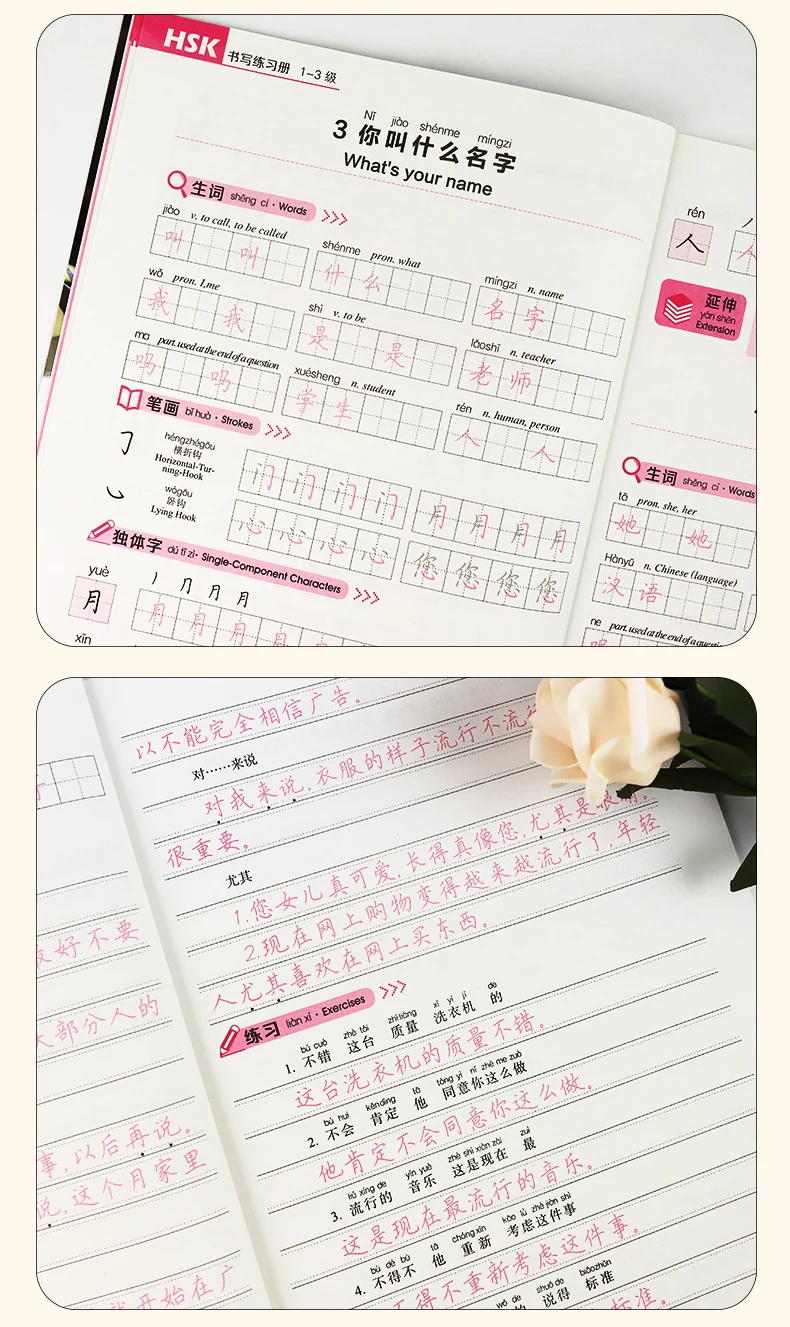 HSK 书写练习册 1-3 级
Nǐ jiào shénme míngzi
3 你叫什么名字
What's your name
生词 shēng cí · Words
jiào v. to call, to be called
叫 叫
shénme pron. what
什么
míngzi n. name
名字
wǒ pron. I,me
我 我
shì v. to be
是 是
lǎoshī n. teacher
老师
ma part. used at the end of a question
吗 吗
xuésheng n. student
学生
rén n. human, person
人 人
笔画 bǐ huà · Strokes
héngzhégōu
横折钩
Horizontal-Tur-
ning-Hook
门 门 门 门
月 月 月 月
wògōu
卧钩
Lying Hook
心 心 心 心
您 您 您 您
独体字 dú tǐ zì · Single-Component Characters
yuè
月
月 月 月 月
xīn
rén
人
延伸
yán shēn
Extension
生词 shēng cí · Words
tā pron. she, her
她 她
Hànyǔ n. Chinese (language)
汉语
ne part. used at the end of a question
好不要
大部分人的
事，以后再说。
说，这个月家里
开始在广
以不能完全相信广告。
对……来说
对我来说，衣服的样子流行不流行
很重要。
尤其
1.您女儿真可爱，长得真像您，尤其是眼睛。
2.现在网上购物变得越来越流行了，年轻
人尤其喜欢在网上买东西。
练习 liàn xí · Exercises
bú cuò zhè tái zhìliàng xǐ yī jī de
1. 不错 这台 质量 洗衣机 的
这台洗衣机的质量不错。
bú huì kěndìng tā tóng yì nǐ zhè me zuò
2. 不会 肯定 他 同意你这么做
他肯定不会同意你这么做。
liú xíng de yīn yuè zhè shì xiàn zài zuì
3. 流行的 音乐 这是现在 最
这是现在最流行的音乐。
bù dé bù tā chóng xīn kǎo lǜ zhè jiàn shì
4. 不得不 他 重新 考虑这件事
不得不重新考虑这件事。
wǒ de shuō de biāozhǔn
的 说得 标准
标准。